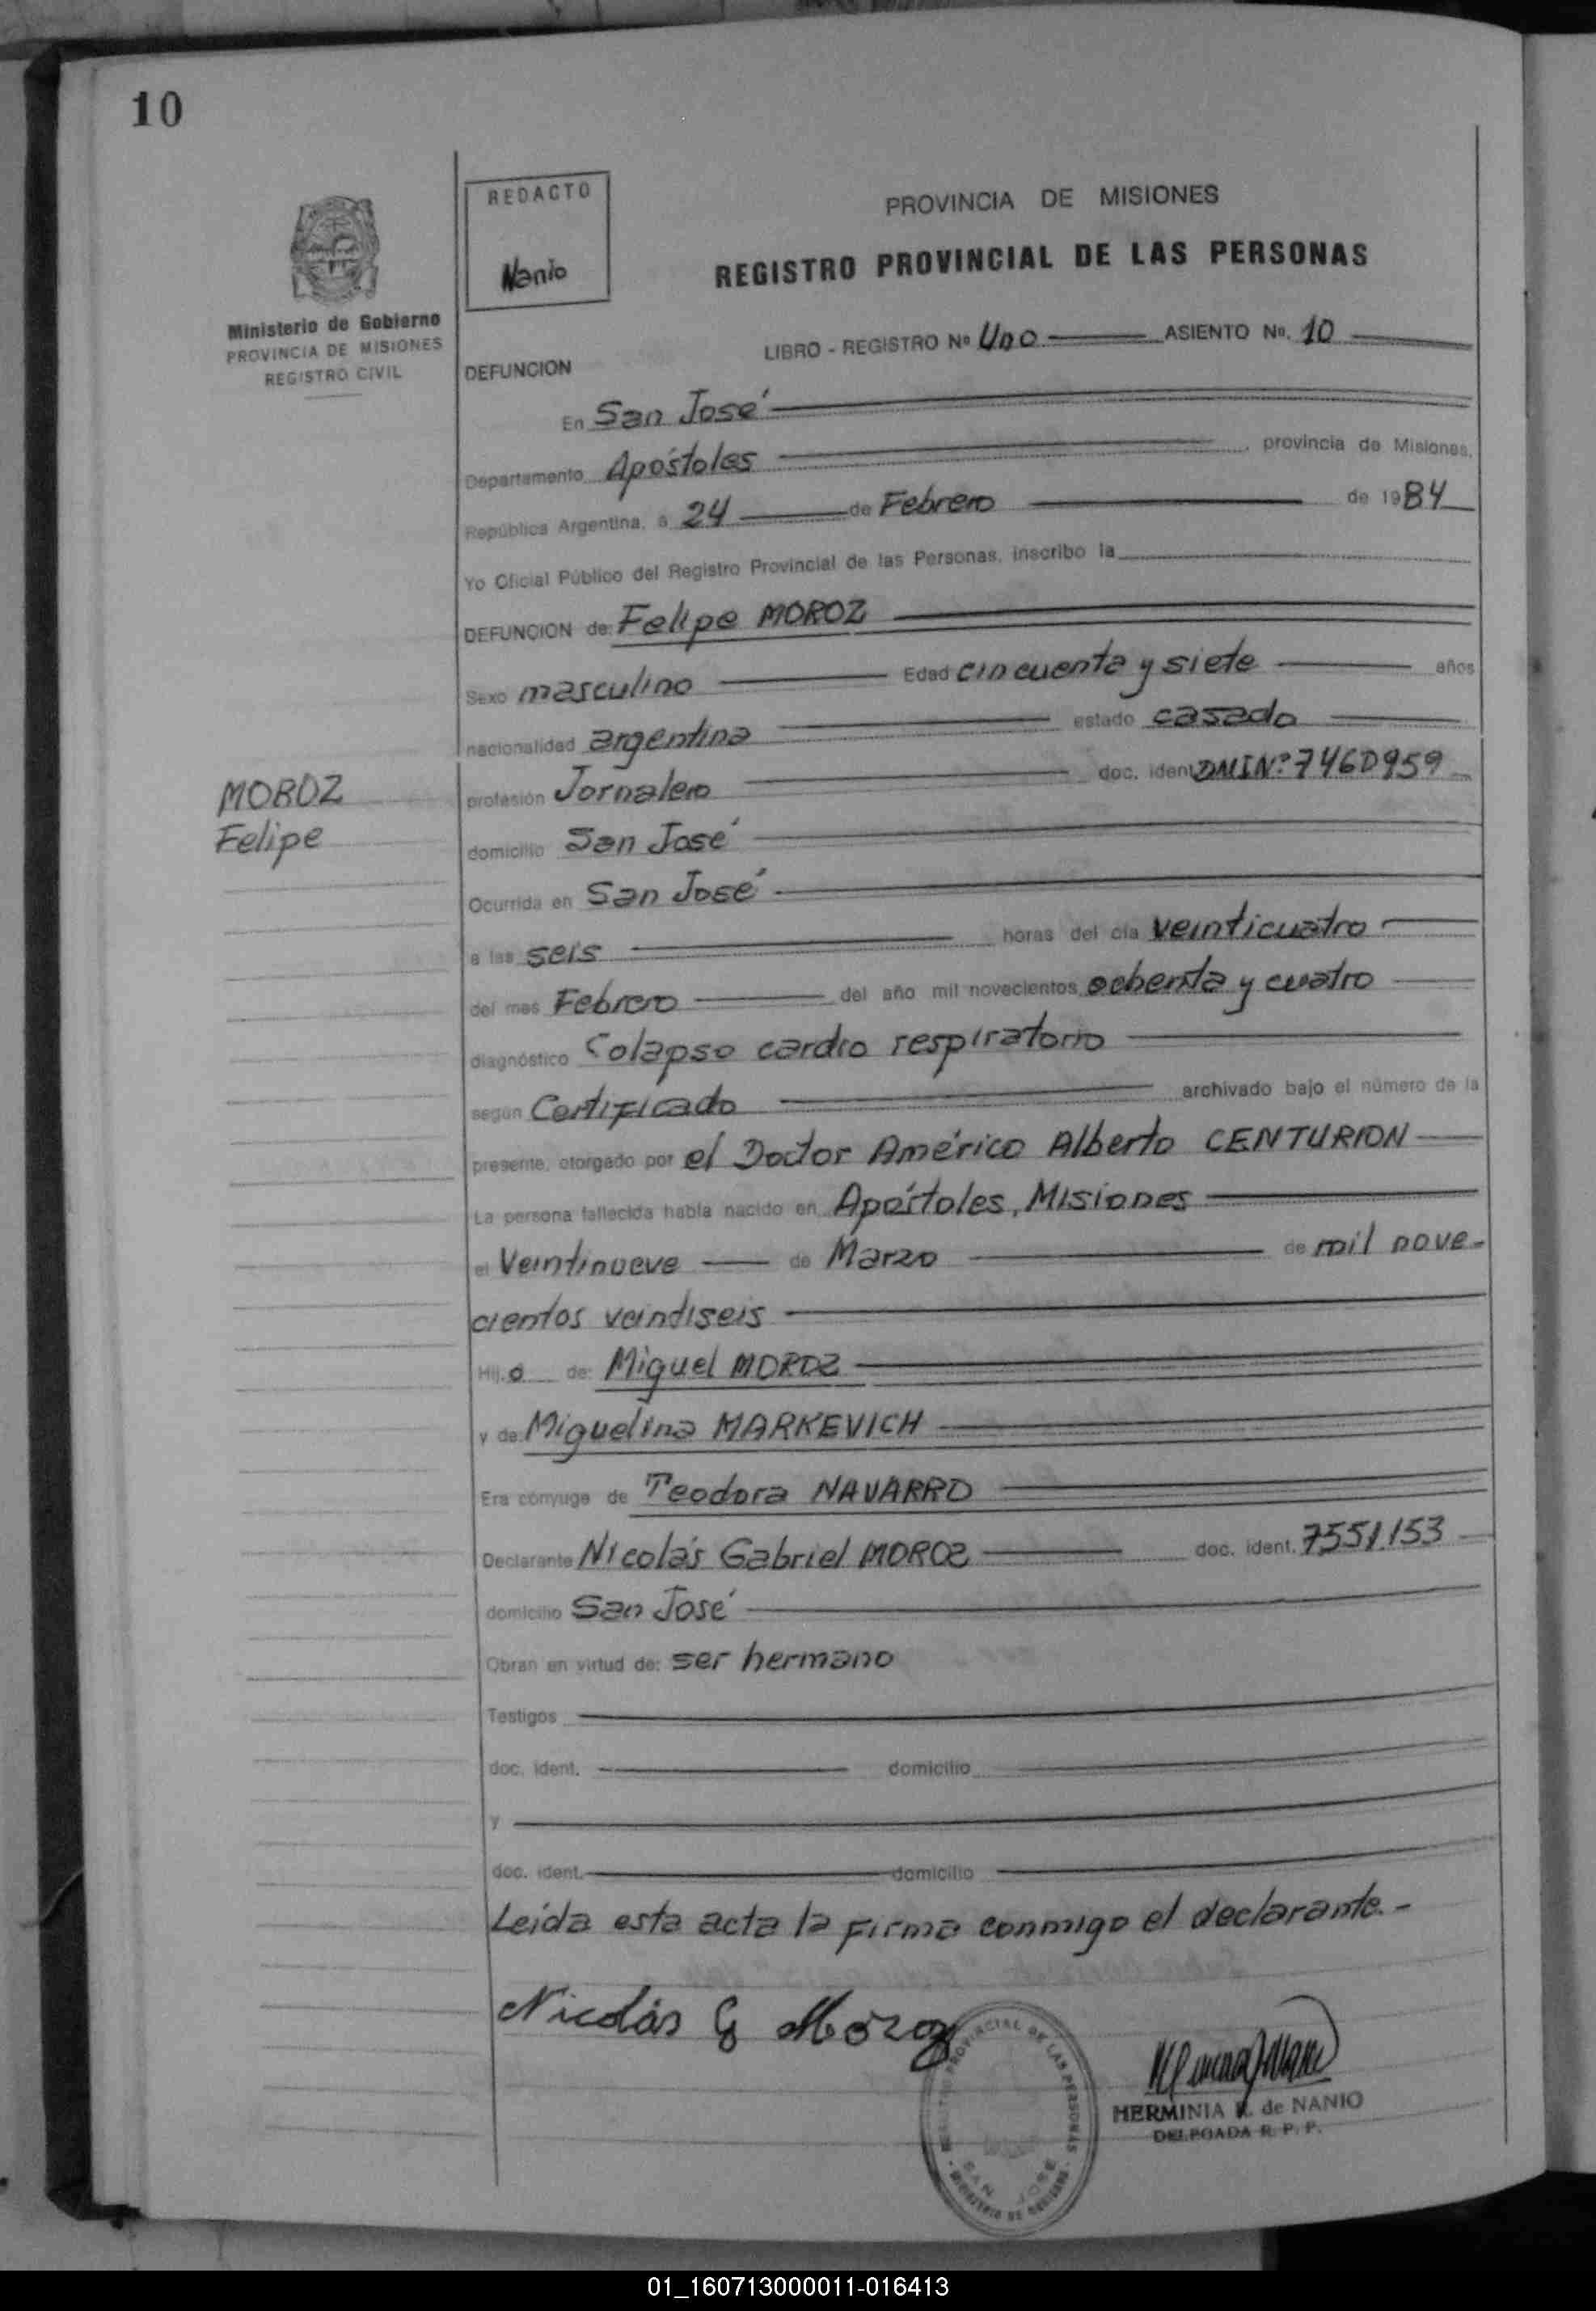 10
REDACTO
Nanio
Ministerio de Gobierno
PROVINCIA DE MISIONES
REGISTRO CIVIL
PROVINCIA DE MISIONES
REGISTRO PROVINCIAL DE LAS PERSONAS
LIBRO - REGISTRO Nº Uno ASIENTO Nº. 10
DEFUNCION
En San José
Departamento Apóstoles, provincia de Misiones,
República Argentina, a 24 de Febrero de 1984
Yo Oficial Público del Registro Provincial de las Personas, inscribo la
DEFUNCION de: Felipe MOROZ
Sexo masculino Edad cincuenta y siete años
nacionalidad argentina estado casado
MOROZ
Felipe
profesión Jornalero doc. ident DMIN:º 7460959
domicilio San José
Ocurrida en San José
a las seis horas del día veinticuatro
del mes Febrero del año mil novecientos ochenta y cuatro
diagnóstico Colapso cardio respiratorio
según Certificado archivado bajo el número de la
presente, otorgado por el Doctor Américo Alberto CENTURION
La persona fallecida había nacido en Apóstoles, Misiones
el Veintinueve de Marzo de mil nove-
cientos veintiseis
Hij.o de: Miguel MOROZ
y de: Miguelina MARKEVICH
Era cónyuge de Teodora NAVARRO
Declarante Nicolás Gabriel MOROZ doc. ident. 7551.153
domicilio San José
Obran en virtud de: ser hermano
Testigos
doc. ident. domicilio
y
doc. ident. domicilio
Leída esta acta la firma conmigo el declarante.-
Nicolás G Moroz
PROVINCIAL DE LAS PERSONAS
SAN JOSE
HERMINIA de NANIO
DELEGADA R. P. P.
01_160713000011-016413